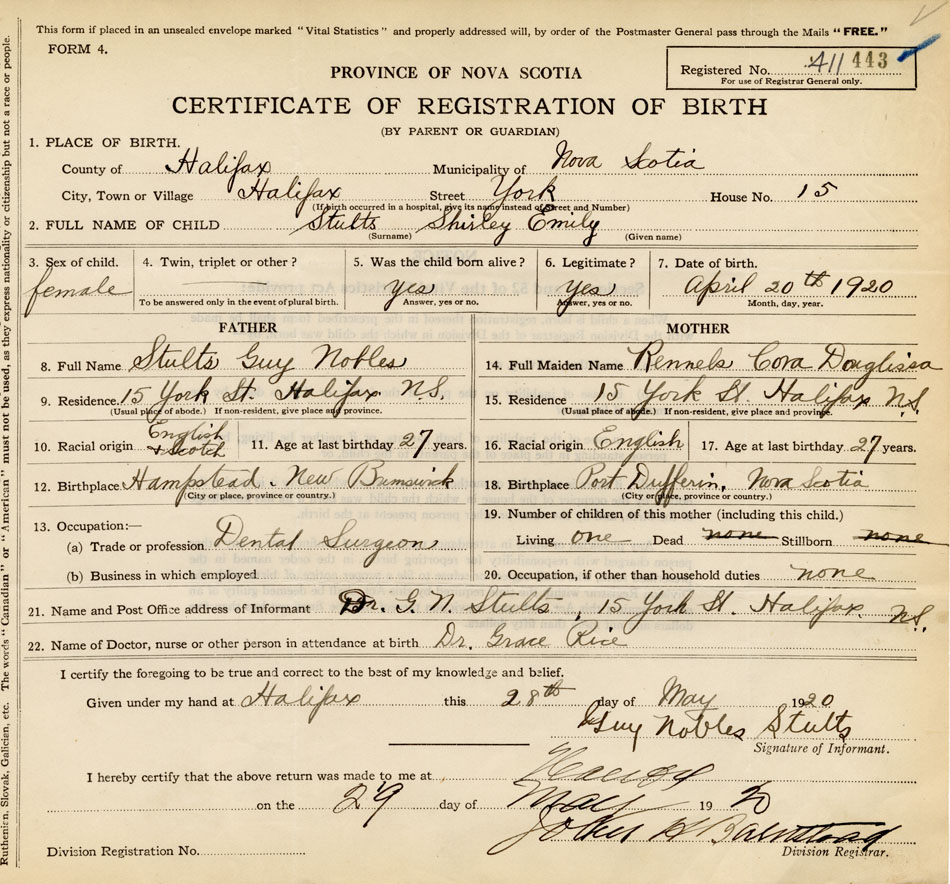 This form if placed in an unsealed envelope marked "Vital Statistics" and properly addressed will, by order of the Postmaster General pass through the Mails "FREE."
FORM 4.
Registered No. 411 443
For use of Registrar General only.
PROVINCE OF NOVA SCOTIA
CERTIFICATE OF REGISTRATION OF BIRTH
(BY PARENT OR GUARDIAN)
1. PLACE OF BIRTH.
County of Halifax Municipality of Nova Scotia
City, Town or Village Halifax Street York House No. 15
(If birth occurred in a hospital, give its name instead of Street and Number)
2. FULL NAME OF CHILD Stults Shirley Emily
(Surname) (Given name)
3. Sex of child. 4. Twin, triplet or other? 5. Was the child born alive? 6. Legitimate? 7. Date of birth.
female yes yes April 20th 1920
To be answered only in the event of plural birth. Answer, yes or no. Answer, yes or no. Month, day, year.
FATHER MOTHER
8. Full Name Stults Guy Nobles 14. Full Maiden Name Rennels Cora Douglissa
9. Residence. 15 York St. Halifax N.S. 15. Residence 15 York St. Halifax N.S.
(Usual place of abode.) If non-resident, give place and province. (Usual place of abode.) If non-resident, give place and province.
10. Racial origin English & Scotch 11. Age at last birthday 27 years. 16. Racial origin English 17. Age at last birthday 27 years.
12. Birthplace Hampstead. New Brunswick 18. Birthplace Port Dufferin, Nova Scotia
(City or place, province or country.) (City or place, province or country.)
13. Occupation:— 19. Number of children of this mother (including this child.)
(a) Trade or profession Dental Surgeon Living one Dead none Stillborn none
(b) Business in which employed 20. Occupation, if other than household duties none
21. Name and Post Office address of Informant Dr. G. N. Stults, 15 York St. Halifax. N.S.
22. Name of Doctor, nurse or other person in attendance at birth Dr. Grace Rice
I certify the foregoing to be true and correct to the best of my knowledge and belief.
Given under my hand at Halifax this 28th day of May 1920
Guy Nobles Stults
Signature of Informant.
I hereby certify that the above return was made to me at
on the 29 day of May 1920
John H
Division Registration No. Division Registrar.
Ruthenien, Slovak, Galicien, etc. The words "Canadian" or "American" must not be used, as they express nationality or citizenship but not a race or people.